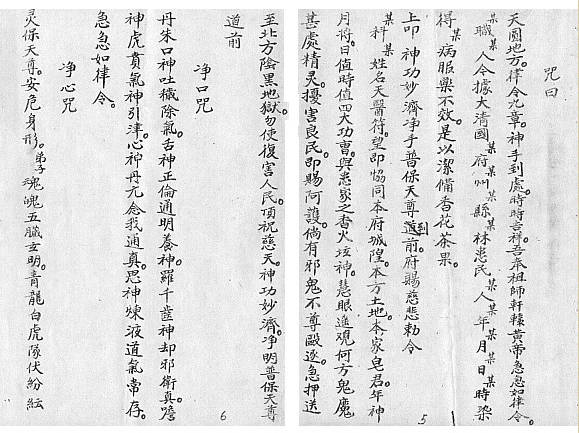 咒曰
天圆地方。律令九章。神手到處。時時吉祥。吾奉祖師軒轅黃帝急急如律令。
某職某人今據大清國某府某州某縣某林患民某人某年某月某日某時染
得某病服藥不效。是以潔備香花茶果。
上叩 神功妙濟净手普保天尊到前。府賜慈悲勅令
某科某姓名天醫符。望即協同本府城隍。本方土地。本家皂君。年神
月将。日值時值四大功曹。與患家之香火垓神。慧眼遙观。何方鬼魔
甚處精灵。擾害良民。即賜阿護。倘有邪鬼不尊毆逐。急押送
5
至北方陰黑地獄。勿使復害人民。頂祝慈天神功妙濟。净明普保天尊
道前
净口咒
丹朱口神吐穢除氣。舌神正倫通明養神。羅千齒神却邪衛真。喉
神虎賁氣神引津。心神丹元念我通真。思神煉液道氣常存。
急急如律令。
净心咒
灵保天尊。安危身形。弟子魂魄五臟玄明。青龍白虎隊伏紛紜
6